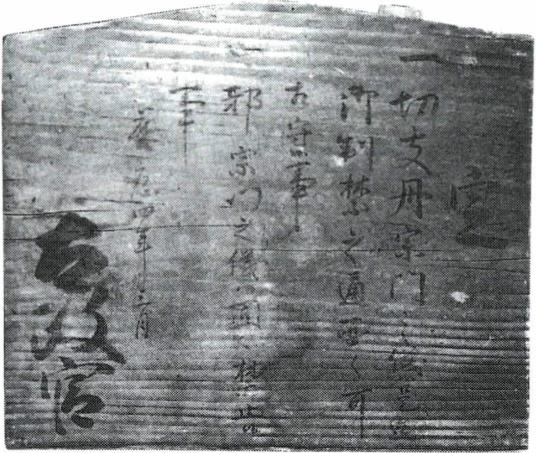 定
一切支丹宗門之儀是迄
御制禁之通固く可
相守事
一邪宗門之儀ハ固く禁止
事
慶應四年三月
太政官